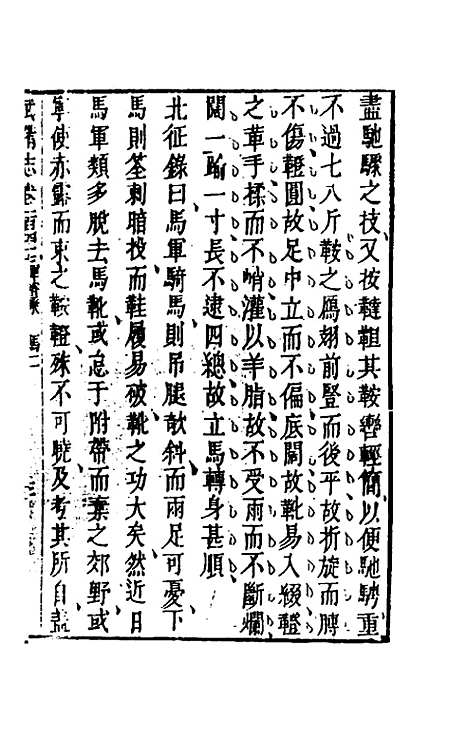 盡馳驟之技又按韃靼其鞍轡輕簡以便馳騁重
不過七八斤鞍之鴈翅前豎而後平故折旋而膊
不傷鐙圓故足中立而不偏底闊故靴易入綴鐙
之革手揉而不硝灌以羊脂故不受雨而不斷爛
闊一踰一寸長不逮四總故立馬轉身甚順
北征錄曰馬軍騎馬則吊腿欹斜而兩足可憂下
馬則筌刺暗投而鞋履易破靴之功大矣然近日
馬軍類多脫去馬靴或怠于附帶而棄之郊野或
寧使赤露而束之鞍鐙殊不可曉及考其所自盖
武備志卷 馬二